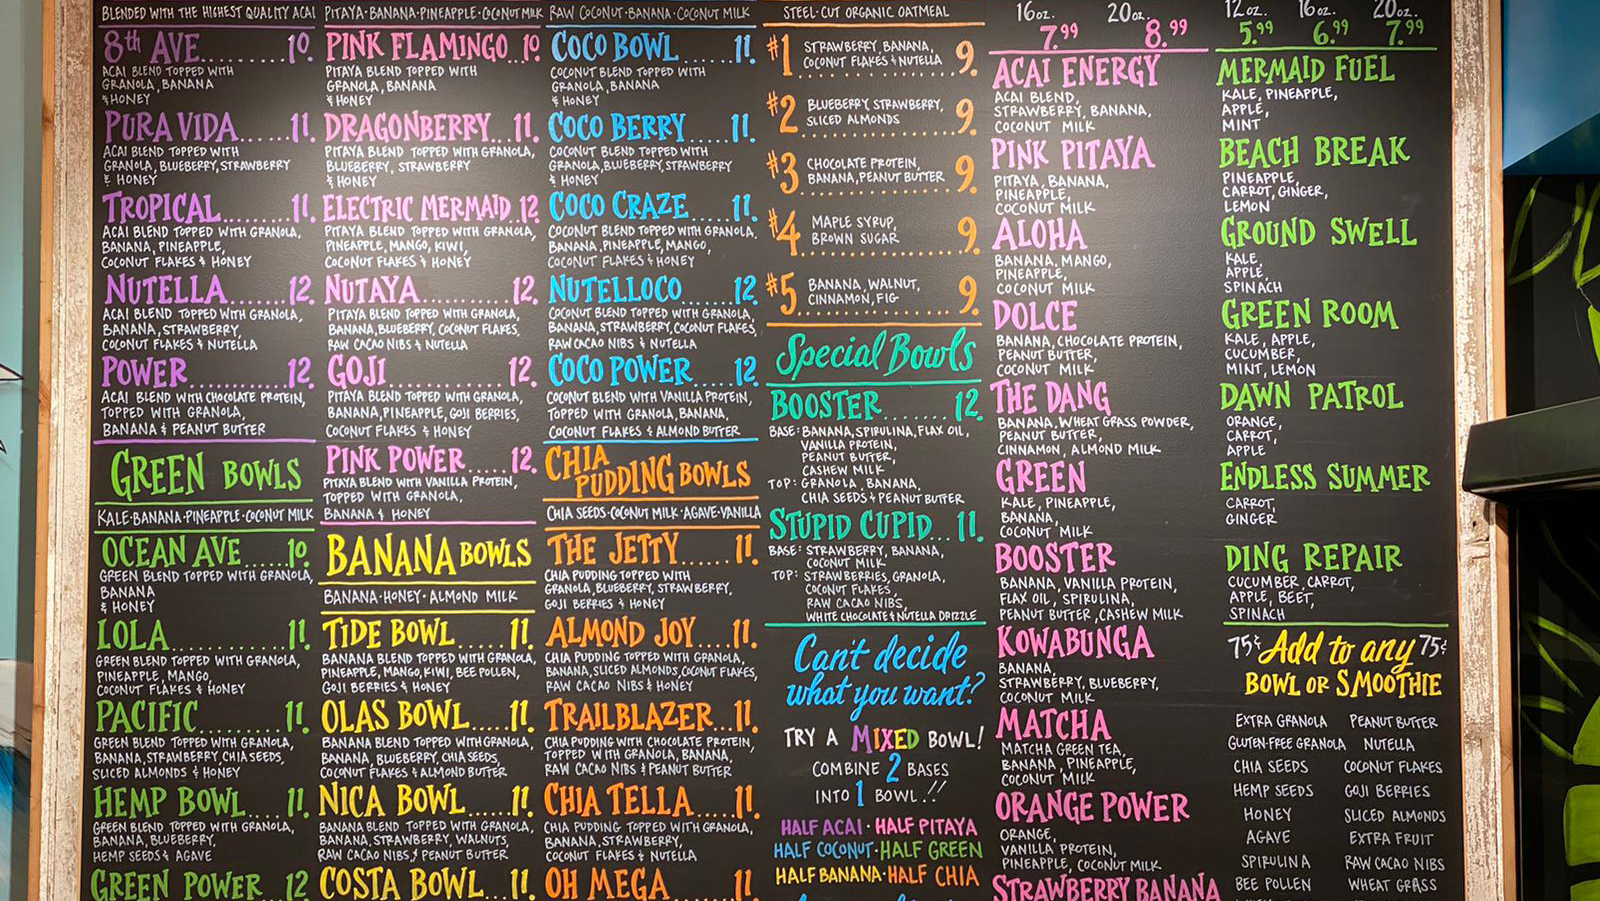 BLENDED WITH THE HIGHEST QUALITY ACAI
8th AVE.........10.
ACAI BLEND TOPPED WITH
GRANOLA, BANANA
& HONEY
PURA VIDA......11.
ACAI BLEND TOPPED WITH
GRANOLA, BLUEBERRY, STRAWBERRY
& HONEY
TROPICAL........11.
ACAI BLEND TOPPED WITH GRANOLA,
BANANA, PINEAPPLE,
COCONUT FLAKES & HONEY
NUTELLA......12.
ACAI BLEND TOPPED WITH GRANOLA,
BANANA, STRAWBERRY,
COCONUT FLAKES & NUTELLA
POWER............12.
ACAI BLEND WITH CHOCOLATE PROTEIN,
TOPPED WITH GRANOLA,
BANANA & PEANUT BUTTER
GREEN BOWLS
KALE·BANANA·PINEAPPLE·COCONUT MILK
OCEAN AVE.....10
GREEN BLEND TOPPED WITH GRANOLA,
BANANA
& HONEY
LOLA..............11.
GREEN BLEND TOPPED WITH GRANOLA,
PINEAPPLE, MANGO,
COCONUT FLAKES & HONEY
PACIFIC..........11.
GREEN BLEND TOPPED WITH GRANOLA,
BANANA, STRAWBERRY, CHIA SEEDS,
SLICED ALMONDS & HONEY
HEMP BOWL.....11.
GREEN BLEND TOPPED WITH GRANOLA,
BANANA, BLUEBERRY,
HEMP SEEDS & AGAVE
GREEN POWER 12
PITAYA·BANANA·PINEAPPLE·COCONUT MILK
PINK FLAMINGO..10.
PITAYA BLEND TOPPED WITH
GRANOLA, BANANA
& HONEY
DRAGONBERRY...11.
PITAYA BLEND TOPPED WITH GRANOLA,
BLUEBERRY, STRAWBERRY
& HONEY
ELECTRIC MERMAID.12.
PITAYA BLEND TOPPED WITH GRANOLA,
PINEAPPLE, MANGO, KIWI,
COCONUT FLAKES & HONEY
NUTAYA..........12.
PITAYA BLEND TOPPED WITH GRANOLA,
BANANA, BLUEBERRY, COCONUT FLAKES,
RAW CACAO NIBS & NUTELLA
GOJI..............12.
PITAYA BLEND TOPPED WITH GRANOLA,
BANANA, PINEAPPLE, GOJI BERRIES,
COCONUT FLAKES & HONEY
PINK POWER.....12.
PITAYA BLEND WITH VANILLA PROTEIN,
TOPPED WITH GRANOLA,
BANANA & HONEY
BANANA BOWLS
BANANA·HONEY·ALMOND MILK
TIDE BOWL.....11.
BANANA BLEND TOPPED WITH GRANOLA,
PINEAPPLE, MANGO, KIWI, BEE POLLEN,
GOJI BERRIES & HONEY
OLAS BOWL.....11.
BANANA BLEND TOPPED WITH GRANOLA,
BANANA, BLUEBERRY, CHIA SEEDS,
COCONUT FLAKES & ALMOND BUTTER
NICA BOWL.....11.
BANANA BLEND TOPPED WITH GRANOLA,
BANANA, STRAWBERRY, WALNUTS,
RAW CACAO NIBS, & PEANUT BUTTER
COSTA BOWL...11.
RAW COCONUT·BANANA·COCONUT MILK
COCO BOWL.......11.
COCONUT BLEND TOPPED WITH
GRANOLA, BANANA
& HONEY
COCO BERRY......11.
COCONUT BLEND TOPPED WITH
GRANOLA, BLUEBERRY, STRAWBERRY
& HONEY
COCO CRAZE......11.
COCONUT BLEND TOPPED WITH GRANOLA,
BANANA, PINEAPPLE, MANGO,
COCONUT FLAKES & HONEY
NUTELLOCO.......12.
COCONUT BLEND TOPPED WITH GRANOLA,
BANANA, STRAWBERRY, COCONUT FLAKES,
RAW CACAO NIBS & NUTELLA
COCO POWER.....12.
COCONUT BLEND WITH VANILLA PROTEIN,
TOPPED WITH GRANOLA, BANANA,
COCONUT FLAKES & ALMOND BUTTER
CHIA
PUDDING BOWLS
CHIA SEEDS·COCONUT MILK·AGAVE·VANILLA
THE JETTY.......11.
CHIA PUDDING TOPPED WITH
GRANOLA, BLUEBERRY, STRAWBERRY,
GOJI BERRIES & HONEY
ALMOND JOY....11.
CHIA PUDDING TOPPED WITH GRANOLA,
BANANA, SLICED ALMONDS, COCONUT FLAKES,
RAW CACAO NIBS & HONEY
TRAILBLAZER..11.
CHIA PUDDING WITH CHOCOLATE PROTEIN,
TOPPED WITH GRANOLA, BANANA,
RAW CACAO NIBS & PEANUT BUTTER
CHIA TELLA.....11.
CHIA PUDDING TOPPED WITH GRANOLA,
BANANA, STRAWBERRY,
COCONUT FLAKES & NUTELLA
OH MEGA 11
STEEL-CUT ORGANIC OATMEAL
#1 STRAWBERRY, BANANA,
COCONUT FLAKES & NUTELLA 9.
#2 BLUEBERRY, STRAWBERRY,
SLICED ALMONDS 9.
#3 CHOCOLATE PROTEIN,
BANANA, PEANUT BUTTER 9.
#4 MAPLE SYRUP,
BROWN SUGAR 9.
#5 BANANA, WALNUT,
CINNAMON, FIG 9.
Special Bowls
BOOSTER.......12.
BASE: BANANA, SPIRULINA, FLAX OIL,
VANILLA PROTEIN,
PEANUT BUTTER,
CASHEW MILK
TOP: GRANOLA, BANANA,
CHIA SEEDS & PEANUT BUTTER
STUPID CUPID...11.
BASE: STRAWBERRY, BANANA,
COCONUT MILK
TOP: STRAWBERRIES, GRANOLA,
COCONUT FLAKES,
RAW CACAO NIBS,
WHITE CHOCOLATE & NUTELLA DRIZZLE
Can't decide
what you want?
TRY A MIXED BOWL!
COMBINE 2 BASES
INTO 1 BOWL!!
HALF ACAI·HALF PITAYA
HALF COCONUT·HALF GREEN
HALF BANANA·HALF CHIA
16oz. 20oz.
7.99 8.99
ACAI ENERGY
ACAI BLEND,
STRAWBERRY, BANANA,
COCONUT MILK
PINK PITAYA
PITAYA, BANANA,
PINEAPPLE,
COCONUT MILK
ALOHA
BANANA, MANGO,
PINEAPPLE,
COCONUT MILK
DOLCE
BANANA, CHOCOLATE PROTEIN,
PEANUT BUTTER,
COCONUT MILK
THE DANG
BANANA, WHEAT GRASS POWDER,
PEANUT BUTTER,
CINNAMON, ALMOND MILK
GREEN
KALE, PINEAPPLE,
BANANA,
COCONUT MILK
BOOSTER
BANANA, VANILLA PROTEIN,
FLAX OIL, SPIRULINA,
PEANUT BUTTER, CASHEW MILK
KOWABUNGA
BANANA,
STRAWBERRY, BLUEBERRY,
COCONUT MILK
MATCHA
MATCHA GREEN TEA,
BANANA, PINEAPPLE,
COCONUT MILK
ORANGE POWER
ORANGE,
VANILLA PROTEIN,
PINEAPPLE, COCONUT MILK
STRAWBERRY BANANA
12oz. 16oz. 20oz.
5.99 6.99 7.99
MERMAID FUEL
KALE, PINEAPPLE,
APPLE,
MINT
BEACH BREAK
PINEAPPLE,
CARROT, GINGER,
LEMON
GROUND SWELL
KALE,
APPLE,
SPINACH
GREEN ROOM
KALE, APPLE,
CUCUMBER,
MINT, LEMON
DAWN PATROL
ORANGE,
CARROT,
APPLE
ENDLESS SUMMER
CARROT,
GINGER
DING REPAIR
CUCUMBER, CARROT,
APPLE, BEET,
SPINACH
75¢ Add to any 75¢
BOWL OR SMOOTHIE
EXTRA GRANOLA PEANUT BUTTER
GLUTEN-FREE GRANOLA NUTELLA
CHIA SEEDS COCONUT FLAKES
HEMP SEEDS GOJI BERRIES
HONEY SLICED ALMONDS
AGAVE EXTRA FRUIT
SPIRULINA RAW CACAO NIBS
BEE POLLEN WHEAT GRASS